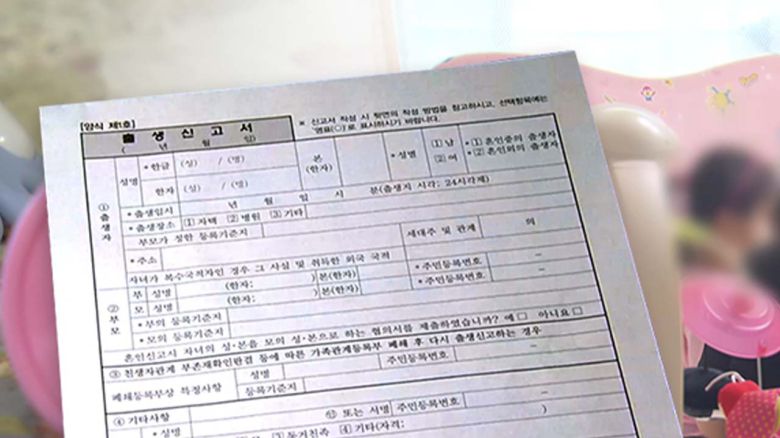 [양식 제1호]
출 생 신 고 서
( 년 월 일)
※ 신고서 작성 시 뒷면의 작성 방법을 참고하시고, 선택항목에는
'영표(○)'로 표시하시기 바랍니다.
① 출생자
성명 *한글 (성) / (명) 본 (한자) *성별 ①남 ②여 *①혼인중의 출생자 *②혼인외의 출생자
한자 (성) / (명)
*출생일시 년 월 일 시 분(출생지 시각: 24시각제)
*출생장소 ①자택 ②병원 ③기타
부모가 정한 등록기준지
*주소 세대주 및 관계 의
자녀가 복수국적자인 경우 그 사실 및 취득한 외국 국적
② 부모
부 성명 (한자: ) 본(한자) *주민등록번호 -
모 성명 (한자: ) 본(한자) *주민등록번호 -
*부의 등록기준지
*모의 등록기준지
혼인신고시 자녀의 성·본을 모의 성·본으로 하는 협의서를 제출하였습니까? 예□ 아니요□
③ 친생자관계 부존재확인판결 등에 따른 가족관계등록부 폐쇄 후 다시 출생신고하는 경우
폐쇄등록부상 특정사항 성명 주민등록번호 -
등록기준지
④ 기타사항
*성명 ㊞ 또는 서명 주민등록번호 -
③동거친족 ④기타(자격: )